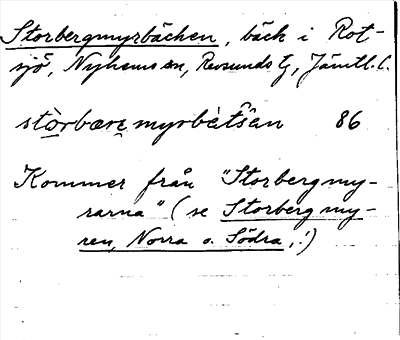 Storbergmyrbäcken, bäck i Rot-
sjö, Nyhems sn, Revsunds tg, Jämtl. l.
stòrbære myrbètšen 86
Kommer från "Storbergmy-
rarna" (se Storbergmy-
ren, Norra o. Södra, !)